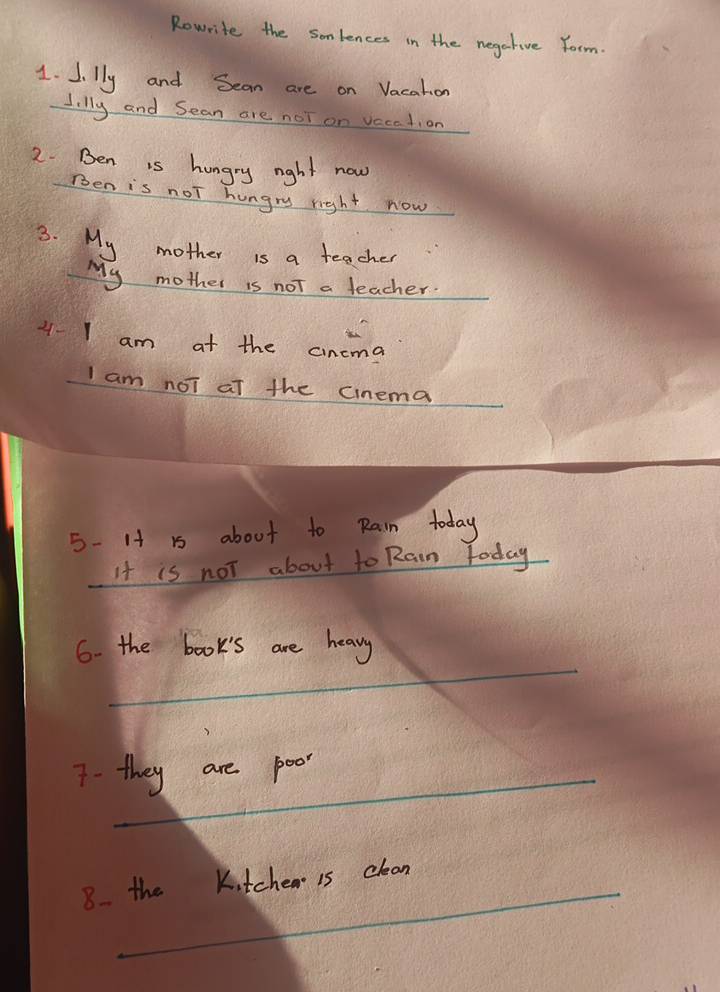 Rewrite the sentences in the negative form.
1- Jilly and Sean are on Vacation
Jilly and Sean are not on vacation
2- Ben is hungry right now
Ben is not hungry right now.
3. My mother is a teacher
My mother is not a teacher.
4- I am at the cinema
I am not at the cinema
5- it is about to Rain today
it is not about to Rain today
6- the book's are heavy
7- they are poor
8- the Kitchen is clean